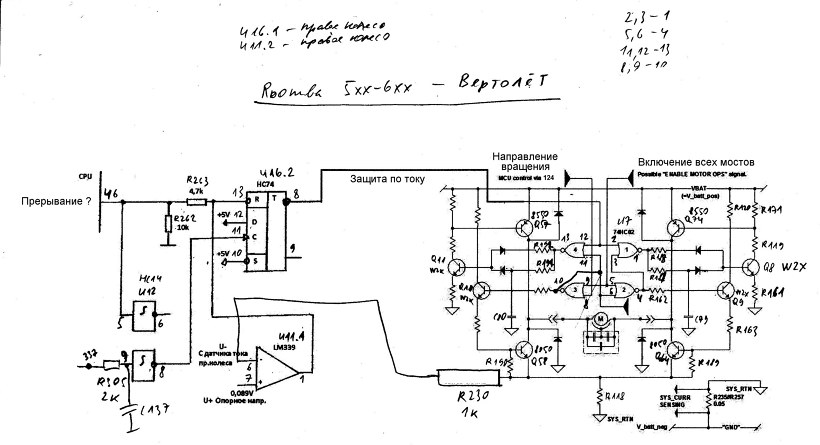 U16.1 - правое колесо
U11.2 - правое колесо
2,3 - 1
5,6 - 4
11,12 - 13
8,9 - 10
Roomba 5xx-6xx - Вертолёт
CPU
46
Прерывание ?
R263
4,7k
R262
10k
U16.2
HC74
13
R
T
8
+5V
12
D
11
C
+5V
10
S
9
Защита по току
HC14
U12
5
6
337
9
8
R305
2k
C137
U-
С датчика тока
пр.колеса
6
7
U11.1
LM339
1
0,089V
U+ Опорное напр.
R230
1k
Направление
вращения
MCU control via 124
Включение всех мостов
Possible "ENABLE MOTOR OPS" signal.
VBAT
(=V_batt_pos)
8550
Q57
U7
74HC02
8550
Q74
R120
R171
R119
13
12
11
4
2
3
1
1
Q11
W2x
Q8 W2X
R161
10
3
9
8
5
6
2
4
R162
W2x
Q9
R163
C80
C79
M
8050
Q58
R150
8050
Q64
R189
R118
SYS_RTN
SYS_CURR
SENSING
SYS_RTN
R235/R257
0.05
V_batt_neg
"GND"